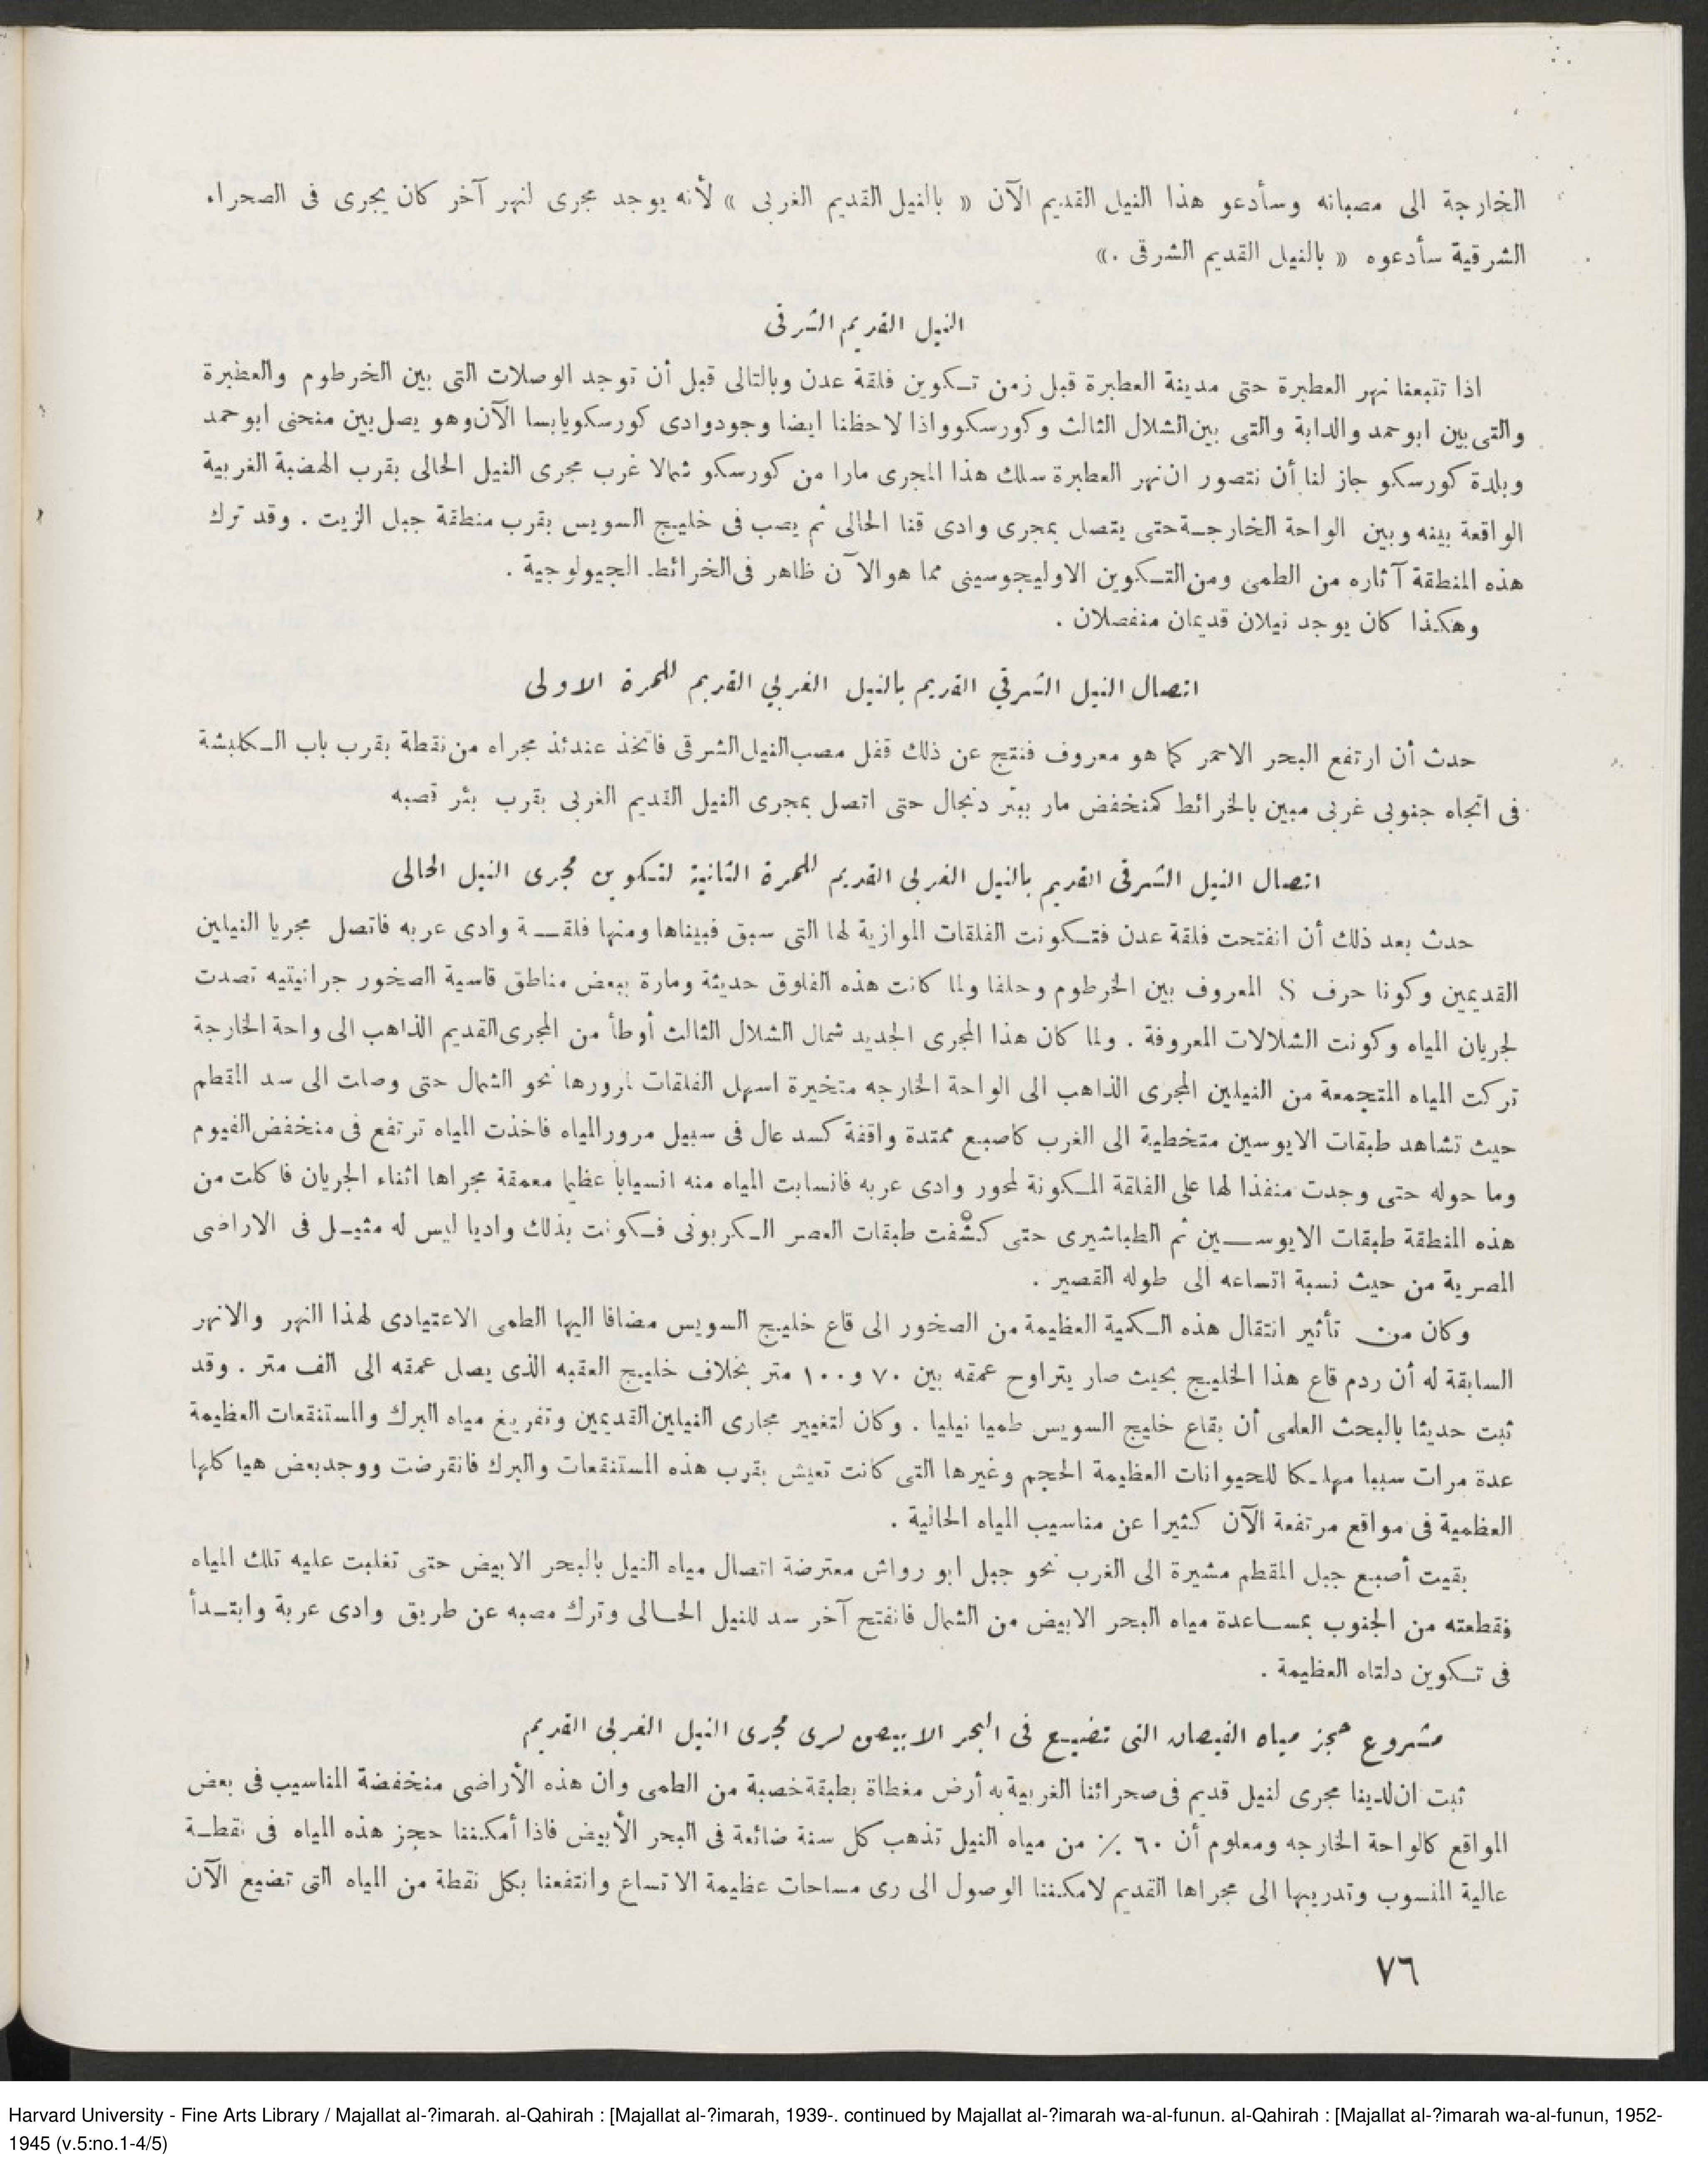 الخارجة الى مصباته وسأدعو هذا النيل القديم الآن « بالنيل القديم الغربى » لأنه يوجد مجرى لنهر آخر كان يجرى فى الصحراء
الشرقية سأدعوه « بالنيل القديم الشرقى .»
النيل القديم الشرقى
اذا تتبعنا نهر العطبرة حتى مدينة العطبرة قبل زمن تكوين فلقة عدن وبالتالى قبل أن توجد الوصلات التى بين الخرطوم والعطبرة
والتى بين ابو حمد والدابة والتى بين الشلال الثالث وكورسكو واذا لاحظنا ايضا وجود وادى كورسكو يابسا الآن وهو يصل بين منحنى ابو حمد
وبلدة كورسكو جاز لنا أن نتصور ان نهر العطبرة سلك هذا المجرى مارا من كورسكو شمالا غرب مجرى النيل الحالى بقرب الهضبة الغربية
الواقعة بينه وبين الواحة الخارجة حتى يتصل بمجرى وادى قنا الحالى ثم يصب فى خليج السويس بقرب منطقة جبل الزيت . وقد ترك
هذه المنطقة آثاره من الطمى ومن التكوين الاوليجوسينى مما هو الآن ظاهر فى الخرائط الجيولوجية .
وهكذا كان يوجد نيلان قديمان منفصلان .
اتصال النيل الشرقي القديم بالنيل الغربي القديم للمرة الاولى
حدث أن ارتفع البحر الاحمر كما هو معروف فنتج عن ذلك قفل مصب النيل الشرقى فاتخذ عندئذ مجراه من نقطة بقرب باب الكلبشة
فى اتجاه جنوبى غربى مبين بالخرائط كمنخفض مار ببئر دنجال حتى اتصل بمجرى النيل القديم الغربى بقرب بئر قصبه
اتصال النيل الشرقى القديم بالنيل الغربى القديم للمرة الثانية لتكوين مجرى النيل الحالى
حدث بعد ذلك أن انفتحت فلقة عدن فتكونت الفلقات الموازية لها التى سبق فبيناها ومنها فلقة وادى عربه فاتصل مجريا النيلين
القديمين وكونا حرف S المعروف بين الخرطوم وحلفا ولما كانت هذه الفلوق حديثة ومارة ببعض مناطق قاسية الصخور جرانيتيه تصدت
لجريان المياه وكونت الشلالات المعروفة . ولما كان هذا المجرى الجديد شمال الشلال الثالث أوطأ من المجرى القديم الذاهب الى واحة الخارجة
تركت المياه المتجمعة من النيلين المجرى الذاهب الى الواحة الخارجه متخيرة اسهل الفلقات لمرورها نحو الشمال حتى وصلت الى سد المقطم
حيث تشاهد طبقات الايوسين متخطية الى الغرب كاصبع ممتدة واقفة كسد عال فى سبيل مرور المياه فاخذت المياه ترتفع فى منخفض الفيوم
وما حوله حتى وجدت منفذا لها على الفلقة المكونة لمحور وادى عربه فانسابت المياه منه انسيابا عظيما معمقة مجراها اثناء الجريان فاكلت من
هذه المنطقة طبقات الايوسين ثم الطباشيرى حتى كشفت طبقات العصر الكربونى فكونت بذلك واديا ليس له مثيل فى الاراضى
المصرية من حيث نسبة اتساعه الى طوله القصير .
وكان من تأثير انتقال هذه الكمية العظيمة من الصخور الى قاع خليج السويس مضافا اليها الطمى الاعتيادى لهذا النهر والانهر
السابقة له أن ردم قاع هذا الخليج بحيث صار يتراوح عمقه بين ٧٠ و١٠٠ متر بخلاف خليج العقبه الذى يصل عمقه الى الف متر . وقد
ثبت حديثا بالبحث العلمى أن بقاع خليج السويس طميا نيليا . وكان لتغيير مجارى النيلين القديمين وتفريغ مياه البرك والمستنقعات العظيمة
عدة مرات سببا مهلكا للحيوانات العظيمة الحجم وغيرها التى كانت تعيش بقرب هذه المستنقعات والبرك فانقرضت ووجد بعض هياكلها
العظمية فى مواقع مرتفعة الآن كثيرا عن مناسيب المياه الحالية .
بقيت أصبع جبل المقطم مشيرة الى الغرب نحو جبل ابو رواش معترضة اتصال مياه النيل بالبحر الابيض حتى تغلبت عليه تلك المياه
فقطعته من الجنوب بمساعدة مياه البحر الابيض من الشمال فانفتح آخر سد للنيل الحالى وترك مصبه عن طريق وادى عربة وابتدأ
فى تكوين دلتاه العظيمة .
مشروع حجز مياه الفيضان التى تضيع فى البحر الابيض لرى مجرى النيل الغربى القديم
ثبت ان لدينا مجرى لنيل قديم فى صحرائنا الغربية به أرض مغطاة بطبقة خصبة من الطمى وان هذه الأراضى منخفضة المناسيب فى بعض
المواقع كالواحة الخارجه ومعلوم أن ٦٠ ٪ من مياه النيل تذهب كل سنة ضائعة فى البحر الأبيض فاذا أمكننا حجز هذه المياه فى نقطة
عالية المنسوب وتدريبها الى مجراها القديم لامكننا الوصول الى رى مساحات عظيمة الاتساع وانتفعنا بكل نقطة من المياه التى تضيع الآن
٧٦
Harvard University - Fine Arts Library / Majallat al-?imarah. al-Qahirah : [Majallat al-?imarah, 1939-. continued by Majallat al-?imarah wa-al-funun. al-Qahirah : [Majallat al-?imarah wa-al-funun, 1952-
1945 (v.5:no.1-4/5)